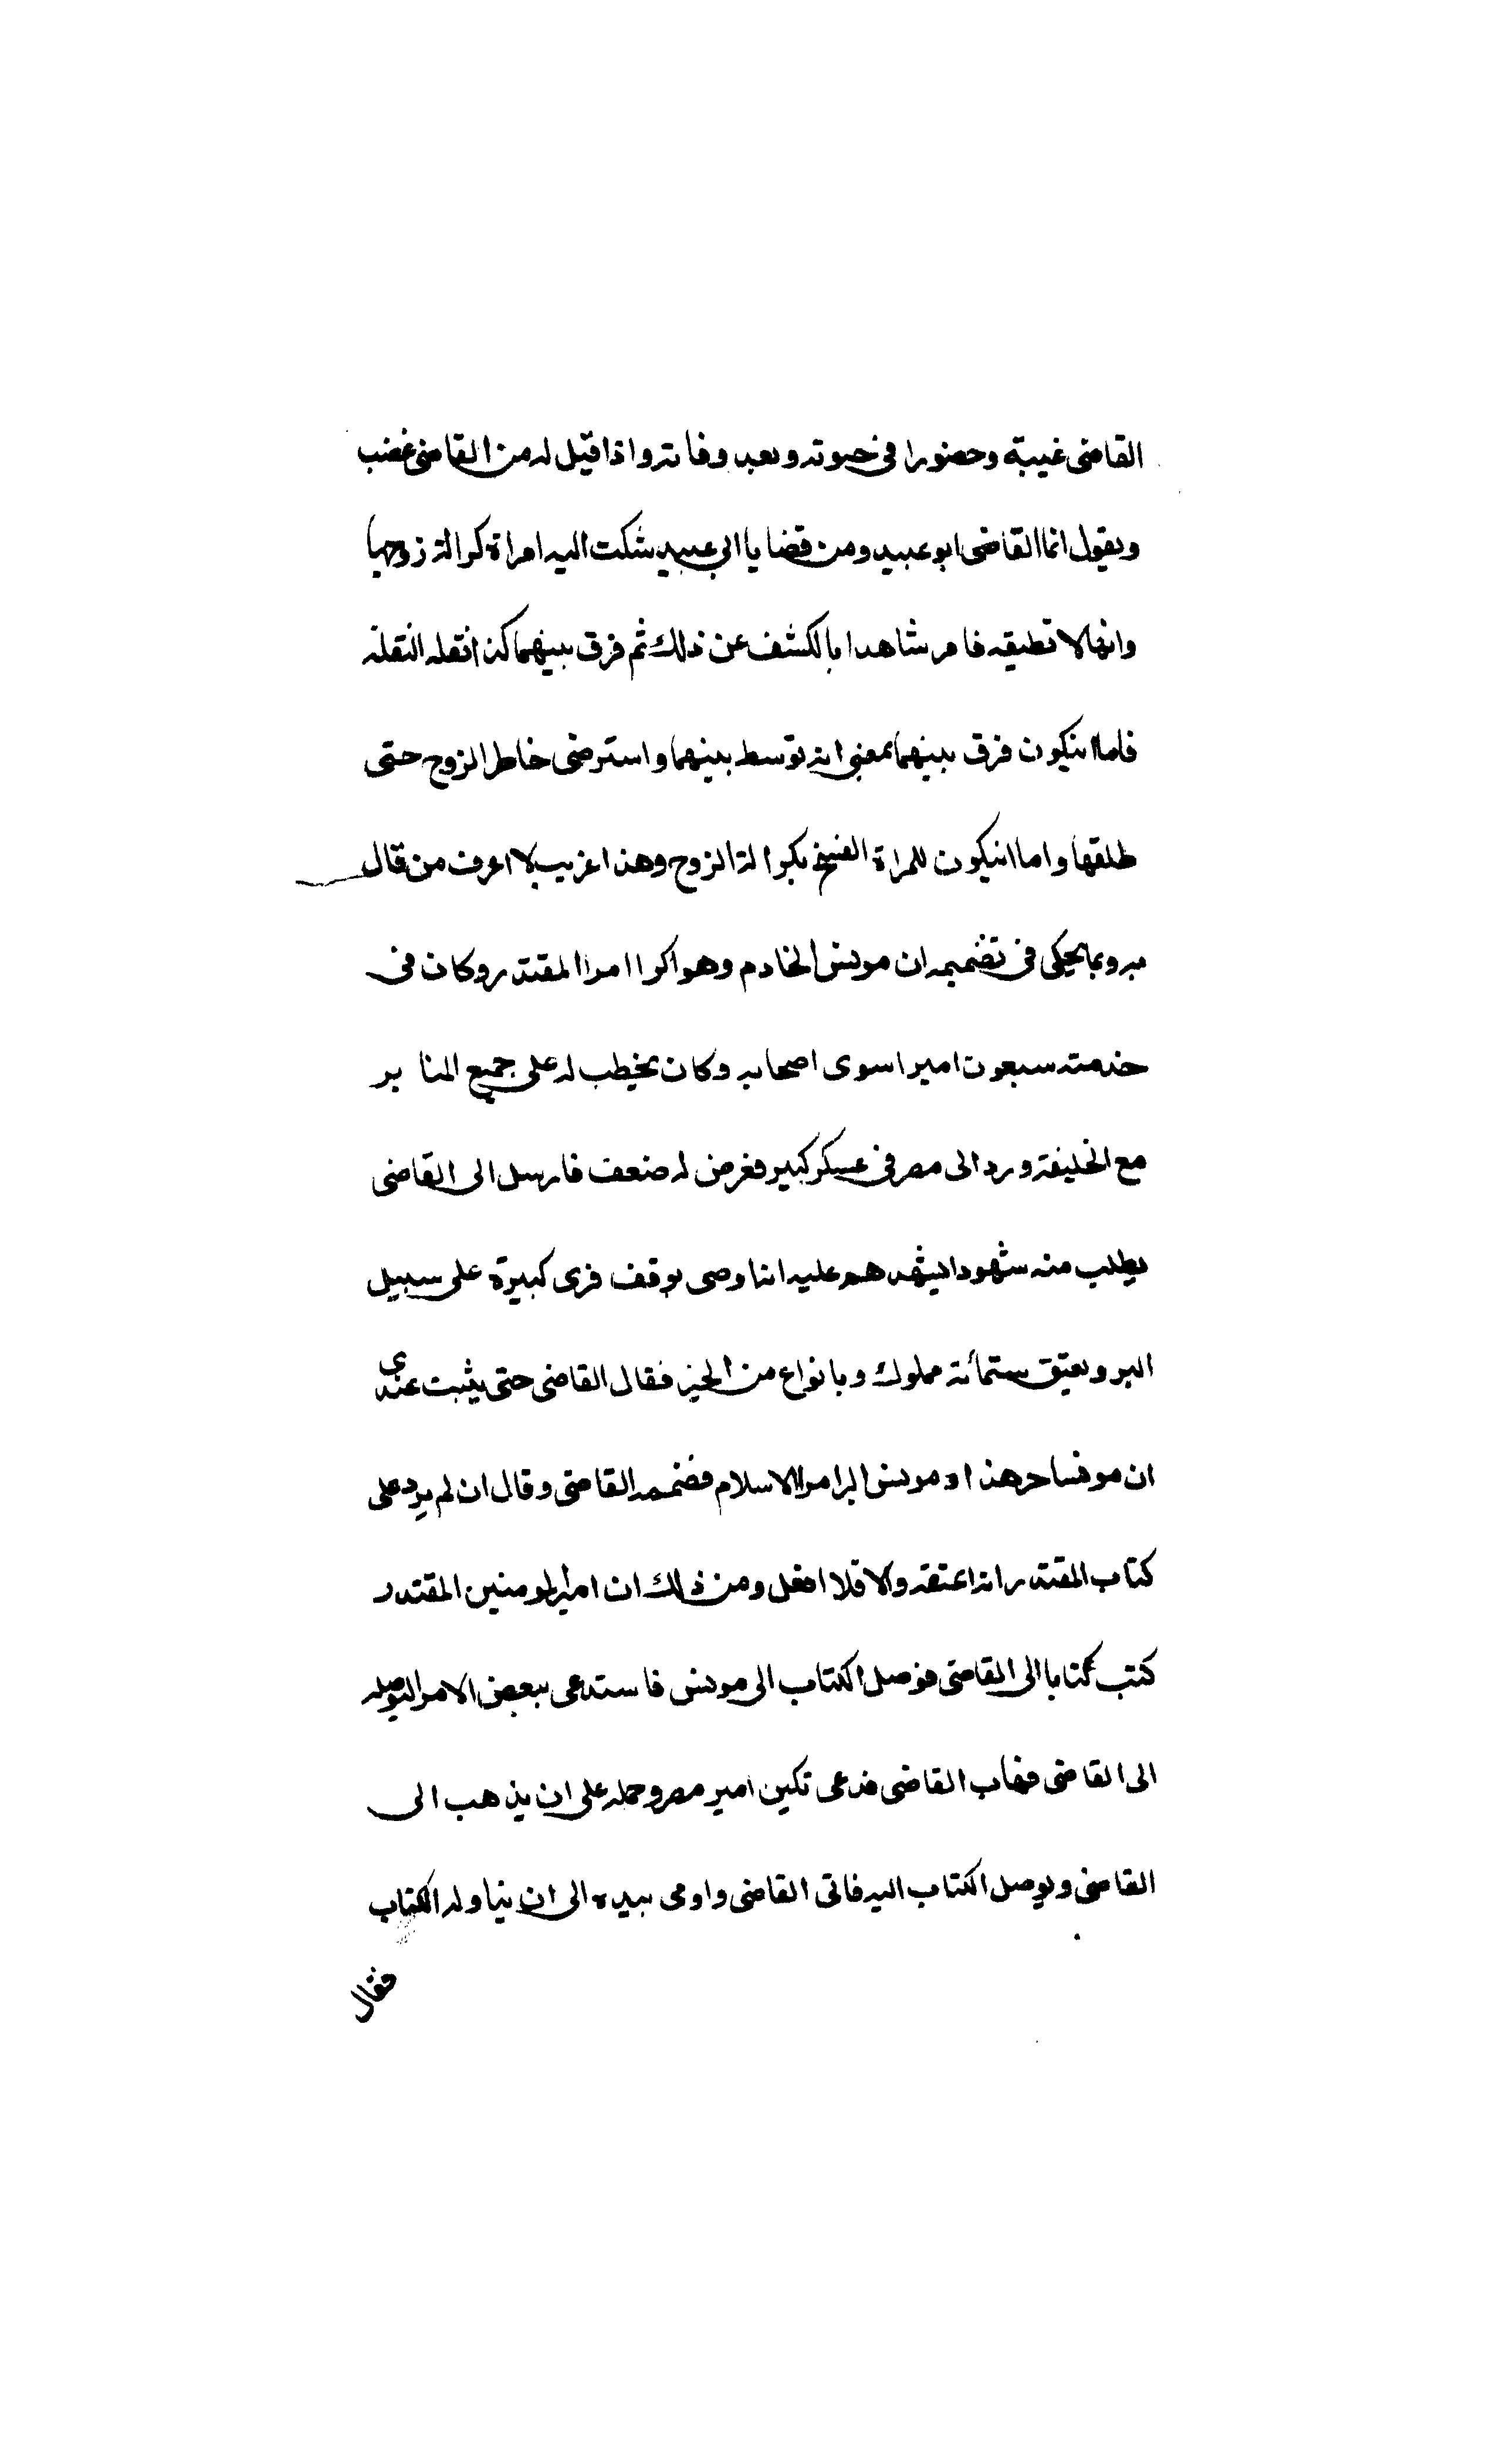 القاضى غيبة وحضورا فى حيوته وبعد وفاته واذا قيل له من القاضى غضب
ويقول انما القاضى ابو عبيد ومن قضايا ابى عبيد شكت اليه امراة كبر آلة زوجها
وانها لا تطيقه فامر شاهدا بالكشف عن ذلك ثم فرق بينهما كذا نقله النقلة
فاما انيكون فرق بينهما بمعنى انه توسط بينهما واسترضى خاطر الزوج حتى
طلقها واما انيكون للمراة الفسخ بكبر آلة الزوج وهذا غريب لا اعرف من قال
به ومما يحكى فى تضميمه ان مونس الخادم وهو اكبر امرا المقتدر وكان فى
خدمته سبعون اميرا سوى اصحابه وكان يخطب له على جميع المنابر
مع الخليفة ورد الى مصر فى عسكر كبير فعرض له ضعف فارسل الى القاضى
يطلب منه شهودا ليشهدهم عليه انه اوصى بوقف قرى كبيرة على سبيل
البر وبعتق ستمائة مملوك وبانواع من الخير فقال القاضى حتى يثبت عندى
ان مونسا حر هذا ومونس اكبر امرا الاسلام فضمم القاضى وقال ان لم يرد على
كتاب المقتدر انه اعتقه والا فلا افعل ومن ذلك ان امير المومنين المقتدر
كتب كتابا الى القاضى فوصل الكتاب الى مونس فاستدعى ببعض الامرا ليوصله
الى القاضى فهاب القاضى فدعى تكين امير مصر وحمله على ان يذهب الى
القاضى ويوصل الكتاب اليه فاتى القاضى واومى بيده الى ان يناوله الكتاب
فقال